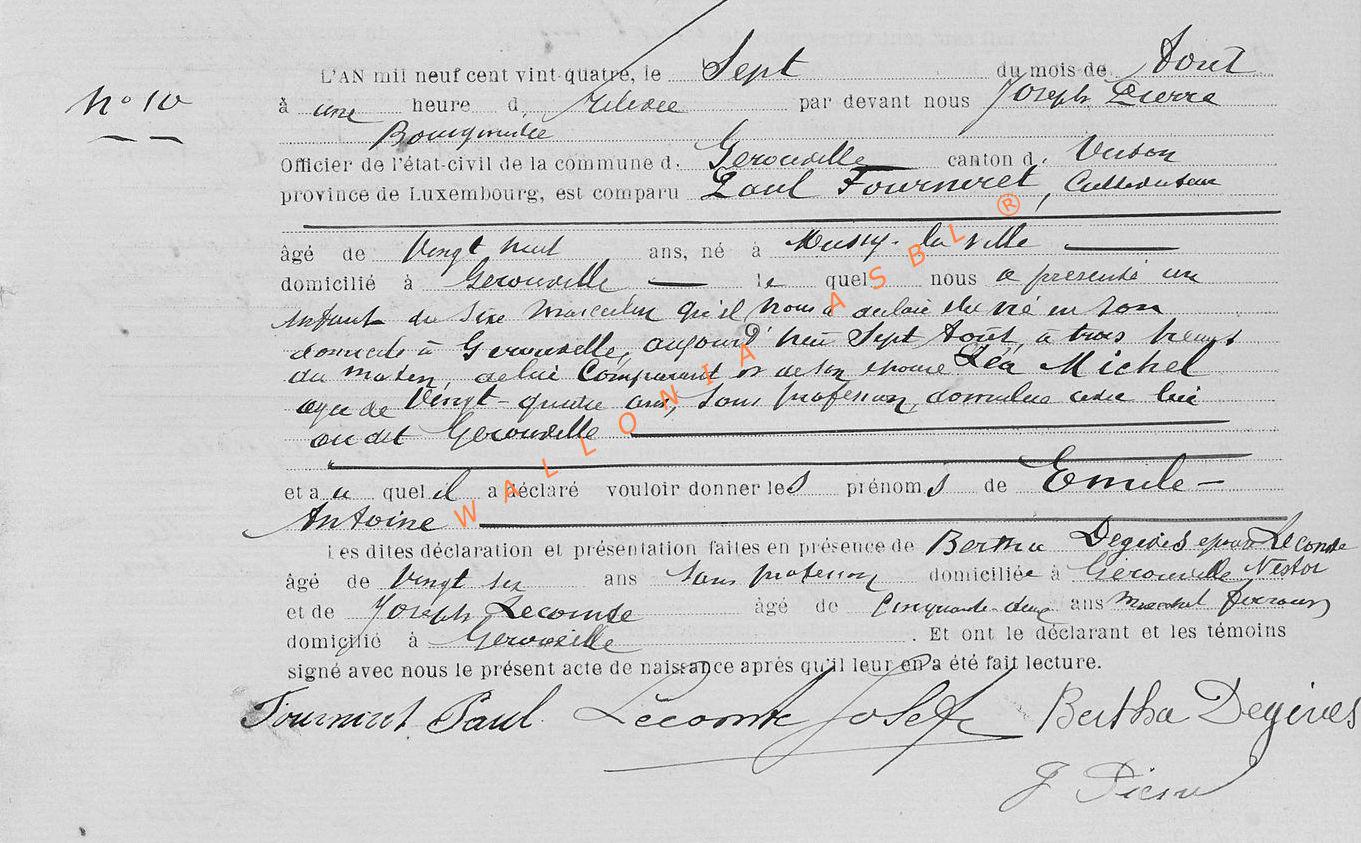 N° 10
L'AN mil neuf cent vint-quatre, le Sept du mois de Août
à une heure d. relevée par devant nous Joseph Pierre
Officier de l'état-civil de la commune d. Gerouville canton d. Virton
province de Luxembourg, est comparu Paul Fourneret, Cultivateur
âgé de Vingt huit ans, né à Mussy-la-ville
domicilié à Gerouville le quel nous a presenté un
enfant du sexe masculin qu'il nous a déclaré être né en son
domicile à Gerouville, aujourd'hui Sept Août, à trois heures
du matin, de lui Comparant et de son épouse Léa Michel
agée de Vingt-quatre ans, sans profession, domiciliée avec lui
au dit Gerouville
et a u quel il a déclaré vouloir donner les prénoms de Emile-
Antoine
Les dites déclaration et présentation faites en présence de Bertha Degives épouse Lecomte
âgé de Vingt six ans Sans profession domiciliée à Gerouville Nestor
et de Joseph Lecomte âgé de Cinquante-deux ans Maréchal ferrant
domicilié à Gerouville. Et ont le déclarant et les témoins
signé avec nous le présent acte de naissance après qu'il leur en a été fait lecture.
Fourneret Paul Lecomte Josef Bertha Degives
J Pierre
WALLONIA ASBL ®